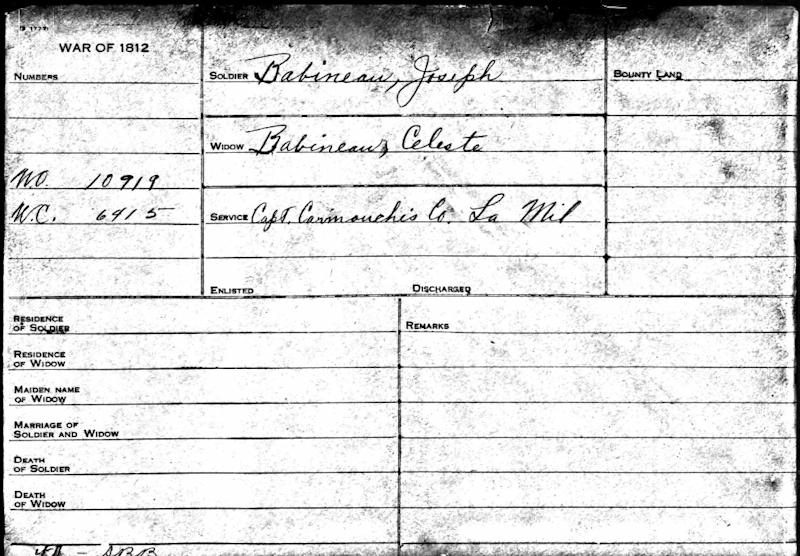 WAR OF 1812
NUMBERS
SOLDIER Babineau, Joseph
BOUNTY LAND
WIDOW Babineau, Celeste
WO. 10919
W.C. 6415
SERVICE Capt. Carmouchis Co. La Mil
ENLISTED DISCHARGED
RESIDENCE
OF SOLDIER
REMARKS
RESIDENCE
OF WIDOW
MAIDEN NAME
OF WIDOW
MARRIAGE OF
SOLDIER AND WIDOW
DEATH
OF SOLDIER
DEATH
OF WIDOW